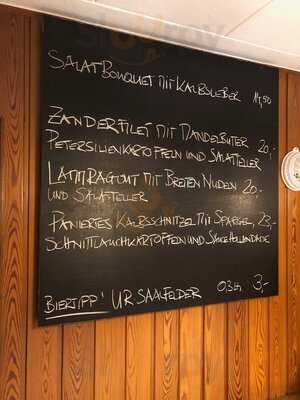 SALATBOUQUET MIT KALBSLEBER 14,50
ZANDERFILET MIT MANDELBUTTER 20,-
PETERSILIENKARTOFFELN UND SALATTELLER
LAMMRAGOUT MIT BREITEN NUDELN 20,-
UND SALATTELLER
PANIERTES KALBSSCHNITZEL MIT SPARGEL, 23,-
SCHNITTLAUCHKARTOFFELN UND SAUCE HOLLANDAISE
BIERTIPP' UR SAALFELDER 0,3 ltr 3,-